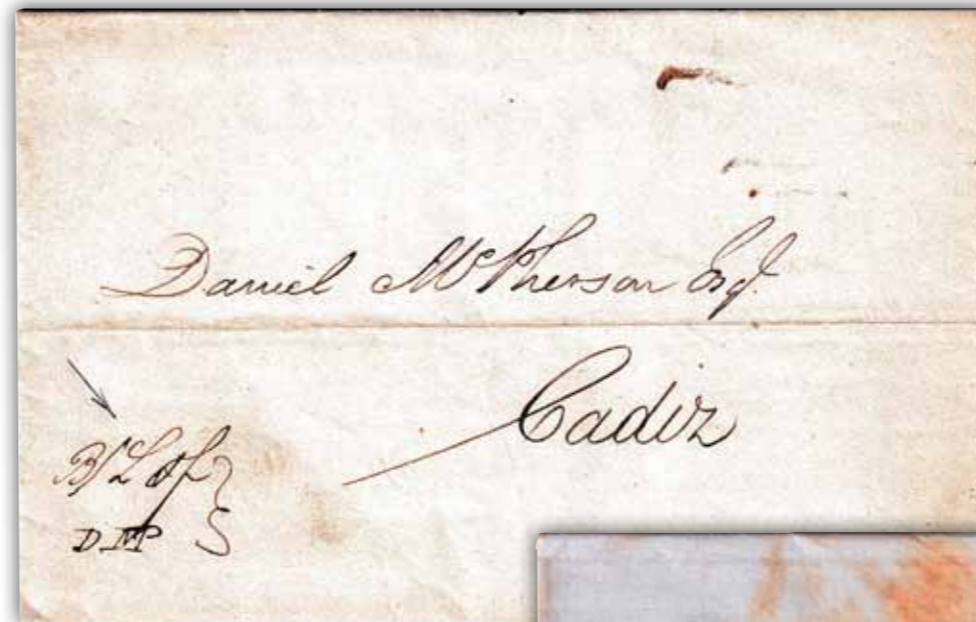 Daniel McPherson Esq.
Cadiz
B/L of
DMP